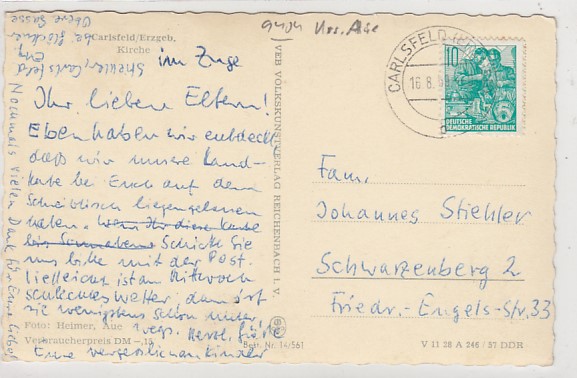 Carlsfeld/Erzgeb.
Kirche
im Zuge
Ihr lieben Eltern!
Eben haben wir entdeckt
daß wir unsere Land-
karte bei Euch auf dem
Schreibtisch liegengelassen
haben. Wenn Ihr diese Karte
Schickt Sie
uns bitte mit der Post.
Vielleicht ist am Mittwoch
schlechtes Wetter, dann ist
sie wenigstens schon unter-
wegs. Herzl. Grüße
Eure vergesslichen Kinder
Foto: Heimer, Aue
Verbraucherpreis DM –,15
Best. Nr. 14/561
Nochmals vielen Dank für Eure
Obere Gasse
VEB VOLKSKUNSTVERLAG REICHENBACH I. V.
CARLSFELD
16.8.
10
DEUTSCHE
DEMOKRATISCHE REPUBLIK
Fam.
Johannes Stiehler
Schwarzenberg 2
Friedr.-Engels-Str. 33
V 11 28 A 246 / 57 DDR